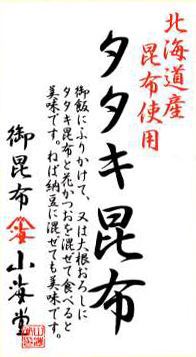 北海道産
昆布使用
タタキ昆布
御飯にふりかけて、又は大根おろしに
タタキ昆布と花かつおを混ぜて食べると
美味です。ねば納豆に混ぜても美味です。
御昆布
小海堂